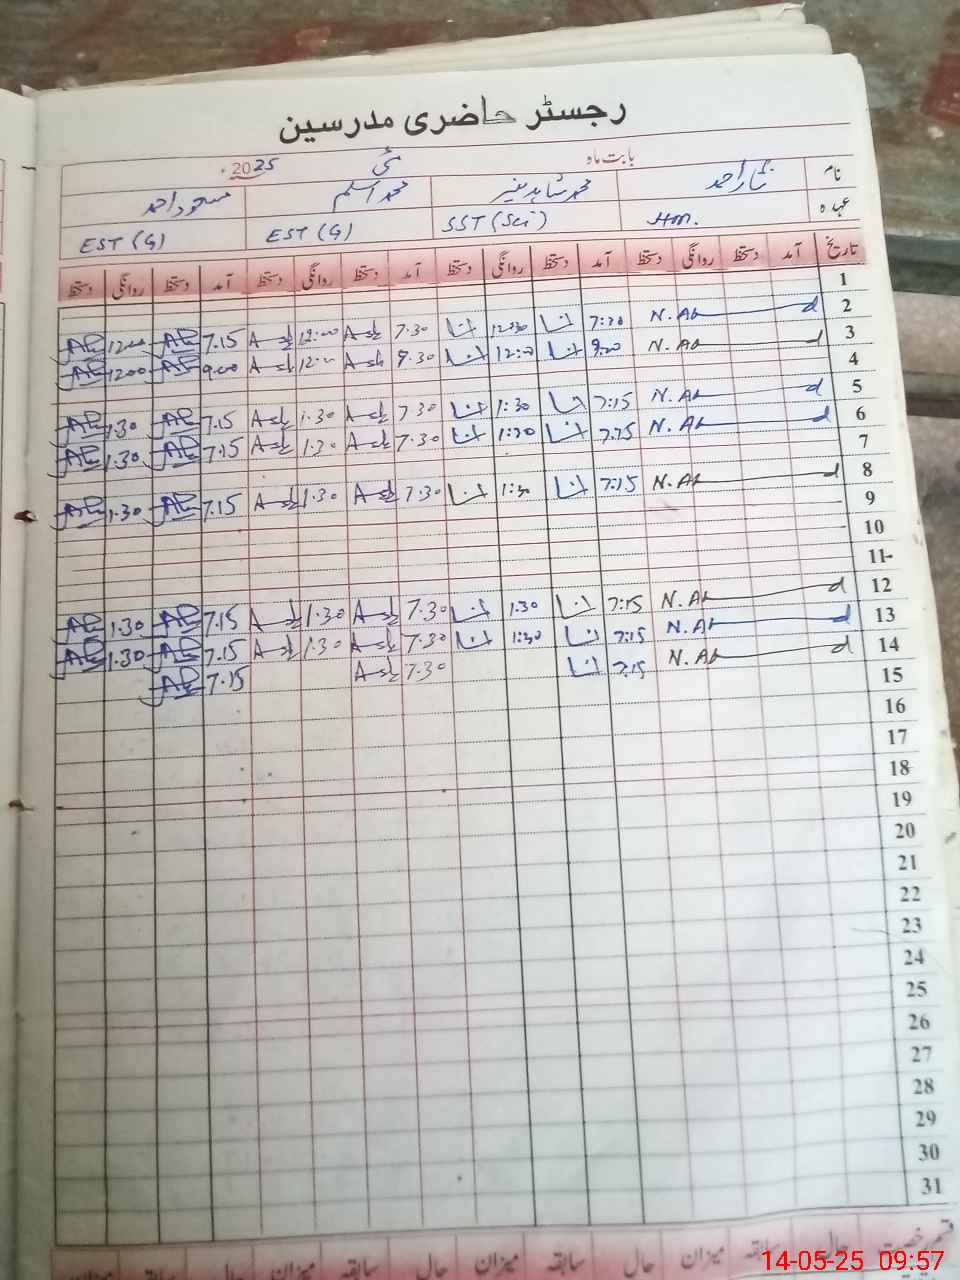 رجسٹر حاضری مدرسین
بابت ماہ مئی 2025
نام نثار احمد محمد شاہد منیر محمد اسلم مسعود احمد
عہدہ HM. SST (Sci) EST (G) EST (G)
تاریخ آمد دستخط روانگی دستخط آمد دستخط روانگی دستخط آمد دستخط روانگی دستخط آمد دستخط روانگی دستخط
1
2 N. Ab 7:30 12:30 7.30 12:00 7.15 12:00
3 N. Ab 9:00 12:00 9.30 12:00 9:00 1200
4
5 N. Ab 7:15 1:30 7.30 1.30 7.15 1.30
6 N. Ab 7:15 1:30 7.30 1.30 7.15 1.30
7
8 N. Ab 7:15 1:30 7.30 1.30 7.15 1.30
9
10
11
12 N. Ab 7:15 1.30 7.30 1.30 7.15 1.30
13 N. Ab 7:15 1:30 7.30 1.30 7.15 1.30
14 N. Ab 7:15 7.30 7.15
15
16
17
18
19
20
21
22
23
24
25
26
27
28
29
30
31
قسم رخصت حال سابقہ میزان حال سابقہ میزان حال سابقہ میزان حال سابقہ
14-05-25 09:57